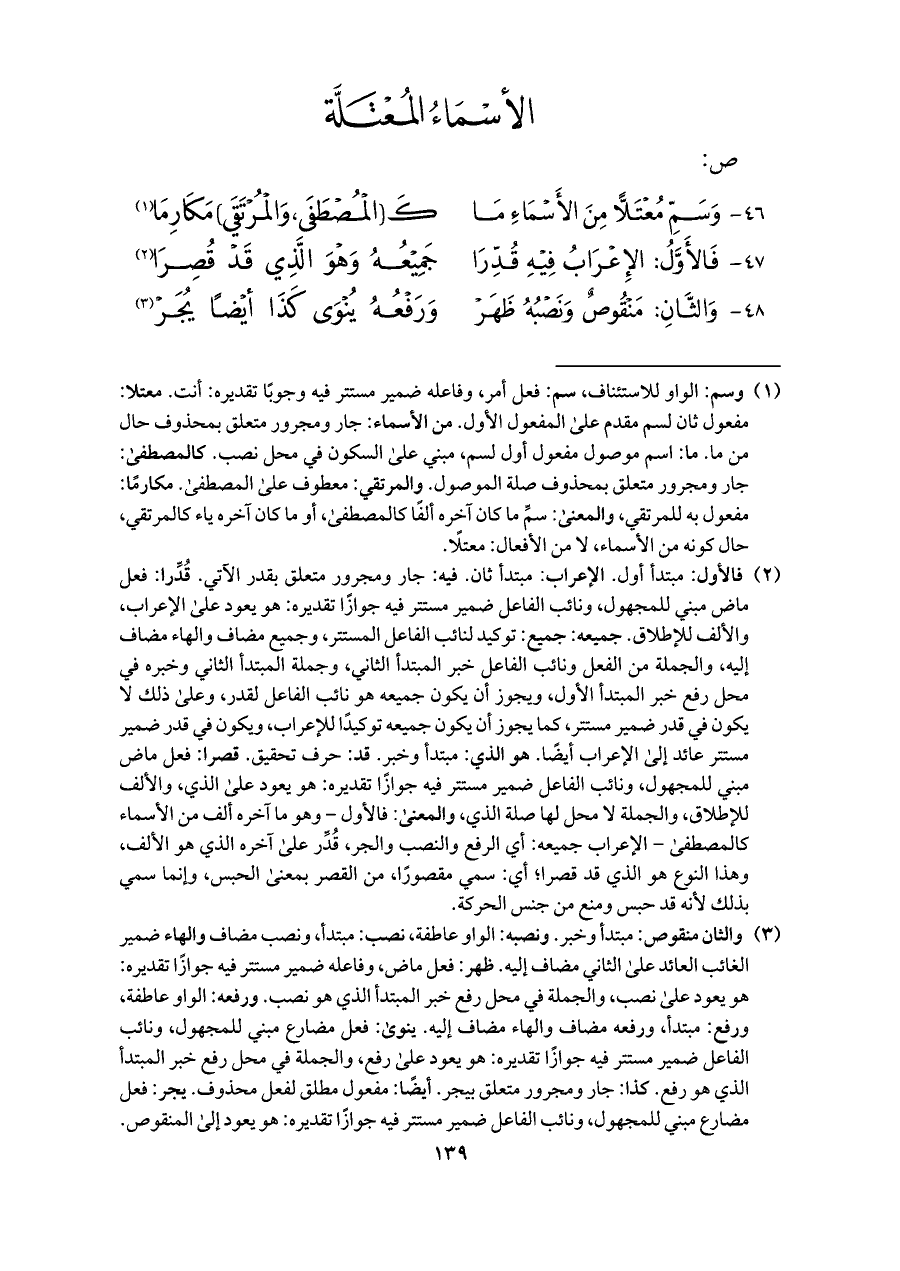 الأسْمَاءُ المُعْتَلَّة
ص:
٤٦- وَسَمِّ مُعْتَلًّا مِنَ الأَسْمَاءِ مَـا كَـ(الْمُصْطَفَى، وَالْمُرْتَقَى) مَكَارِمَا(١)
٤٧- فَالأَوَّلُ: الإِعْرَابُ فِيْهِ قُـدِّرَا جَمِيْعُـهُ وَهْوَ الَّذِي قَدْ قُصِـرَا(٢)
٤٨- وَالثَّانِ: مَنْقُوصٌ وَنَصْبُهُ ظَهَرْ وَرَفْعُـهُ يُنْوَى كَذَا أَيْضًا يُجَـرْ(٣)
(١) وسم: الواو للاستئناف، سم: فعل أمر، وفاعله ضمير مستتر فيه وجوبًا تقديره: أنت. معتلا:
مفعول ثان لسم مقدم علىٰ المفعول الأول. من الأسماء: جار ومجرور متعلق بمحذوف حال
من ما. ما: اسم موصول مفعول أول لسم، مبني علىٰ السكون في محل نصب. كالمصطفىٰ:
جار ومجرور متعلق بمحذوف صلة الموصول. والمرتقي: معطوف علىٰ المصطفىٰ. مكارمًا:
مفعول به للمرتقي، والمعنىٰ: سمِّ ما كان آخره ألفًا كالمصطفىٰ، أو ما كان آخره ياء كالمرتقي،
حال كونه من الأسماء، لا من الأفعال: معتلًا.
(٢) فالأول: مبتدأ أول. الإعراب: مبتدأ ثان. فيه: جار ومجرور متعلق بقدر الآتي. قُدِّرا: فعل
ماض مبني للمجهول، ونائب الفاعل ضمير مستتر فيه جوازًا تقديره: هو يعود علىٰ الإعراب،
والألف للإطلاق. جميعه: جميع: توكيد لنائب الفاعل المستتر، وجميع مضاف والهاء مضاف
إليه، والجملة من الفعل ونائب الفاعل خبر المبتدأ الثاني، وجملة المبتدأ الثاني وخبره في
محل رفع خبر المبتدأ الأول، ويجوز أن يكون جميعه هو نائب الفاعل لقدر، وعلىٰ ذلك لا
يكون في قدر ضمير مستتر، كما يجوز أن يكون جميعه توكيدًا للإعراب، ويكون في قدر ضمير
مستتر عائد إلىٰ الإعراب أيضًا. هو الذي: مبتدأ وخبر. قد: حرف تحقيق. قصرا: فعل ماض
مبني للمجهول، ونائب الفاعل ضمير مستتر فيه جوازًا تقديره: هو يعود علىٰ الذي، والألف
للإطلاق، والجملة لا محل لها صلة الذي، والمعنىٰ: فالأول – وهو ما آخره ألف من الأسماء
كالمصطفىٰ – الإعراب جميعه: أي الرفع والنصب والجر، قُدِّر علىٰ آخره الذي هو الألف،
وهذا النوع هو الذي قد قصرا؛ أي: سمي مقصورًا، من القصر بمعنىٰ الحبس، وإنما سمي
بذلك لأنه قد حبس ومنع من جنس الحركة.
(٣) والثان منقوص: مبتدأ وخبر. ونصبه: الواو عاطفة، نصب: مبتدأ، ونصب مضاف والهاء ضمير
الغائب العائد علىٰ الثاني مضاف إليه. ظهر: فعل ماض، وفاعله ضمير مستتر فيه جوازًا تقديره:
هو يعود علىٰ نصب، والجملة في محل رفع خبر المبتدأ الذي هو نصب. ورفعه: الواو عاطفة،
ورفع: مبتدأ، ورفعه مضاف والهاء مضاف إليه. ينوىٰ: فعل مضارع مبني للمجهول، ونائب
الفاعل ضمير مستتر فيه جوازًا تقديره: هو يعود علىٰ رفع، والجملة في محل رفع خبر المبتدأ
الذي هو رفع. كذا: جار ومجرور متعلق بيجر. أيضًا: مفعول مطلق لفعل محذوف. يجر: فعل
مضارع مبني للمجهول، ونائب الفاعل ضمير مستتر فيه جوازًا تقديره: هو يعود إلىٰ المنقوص.
١٣٩